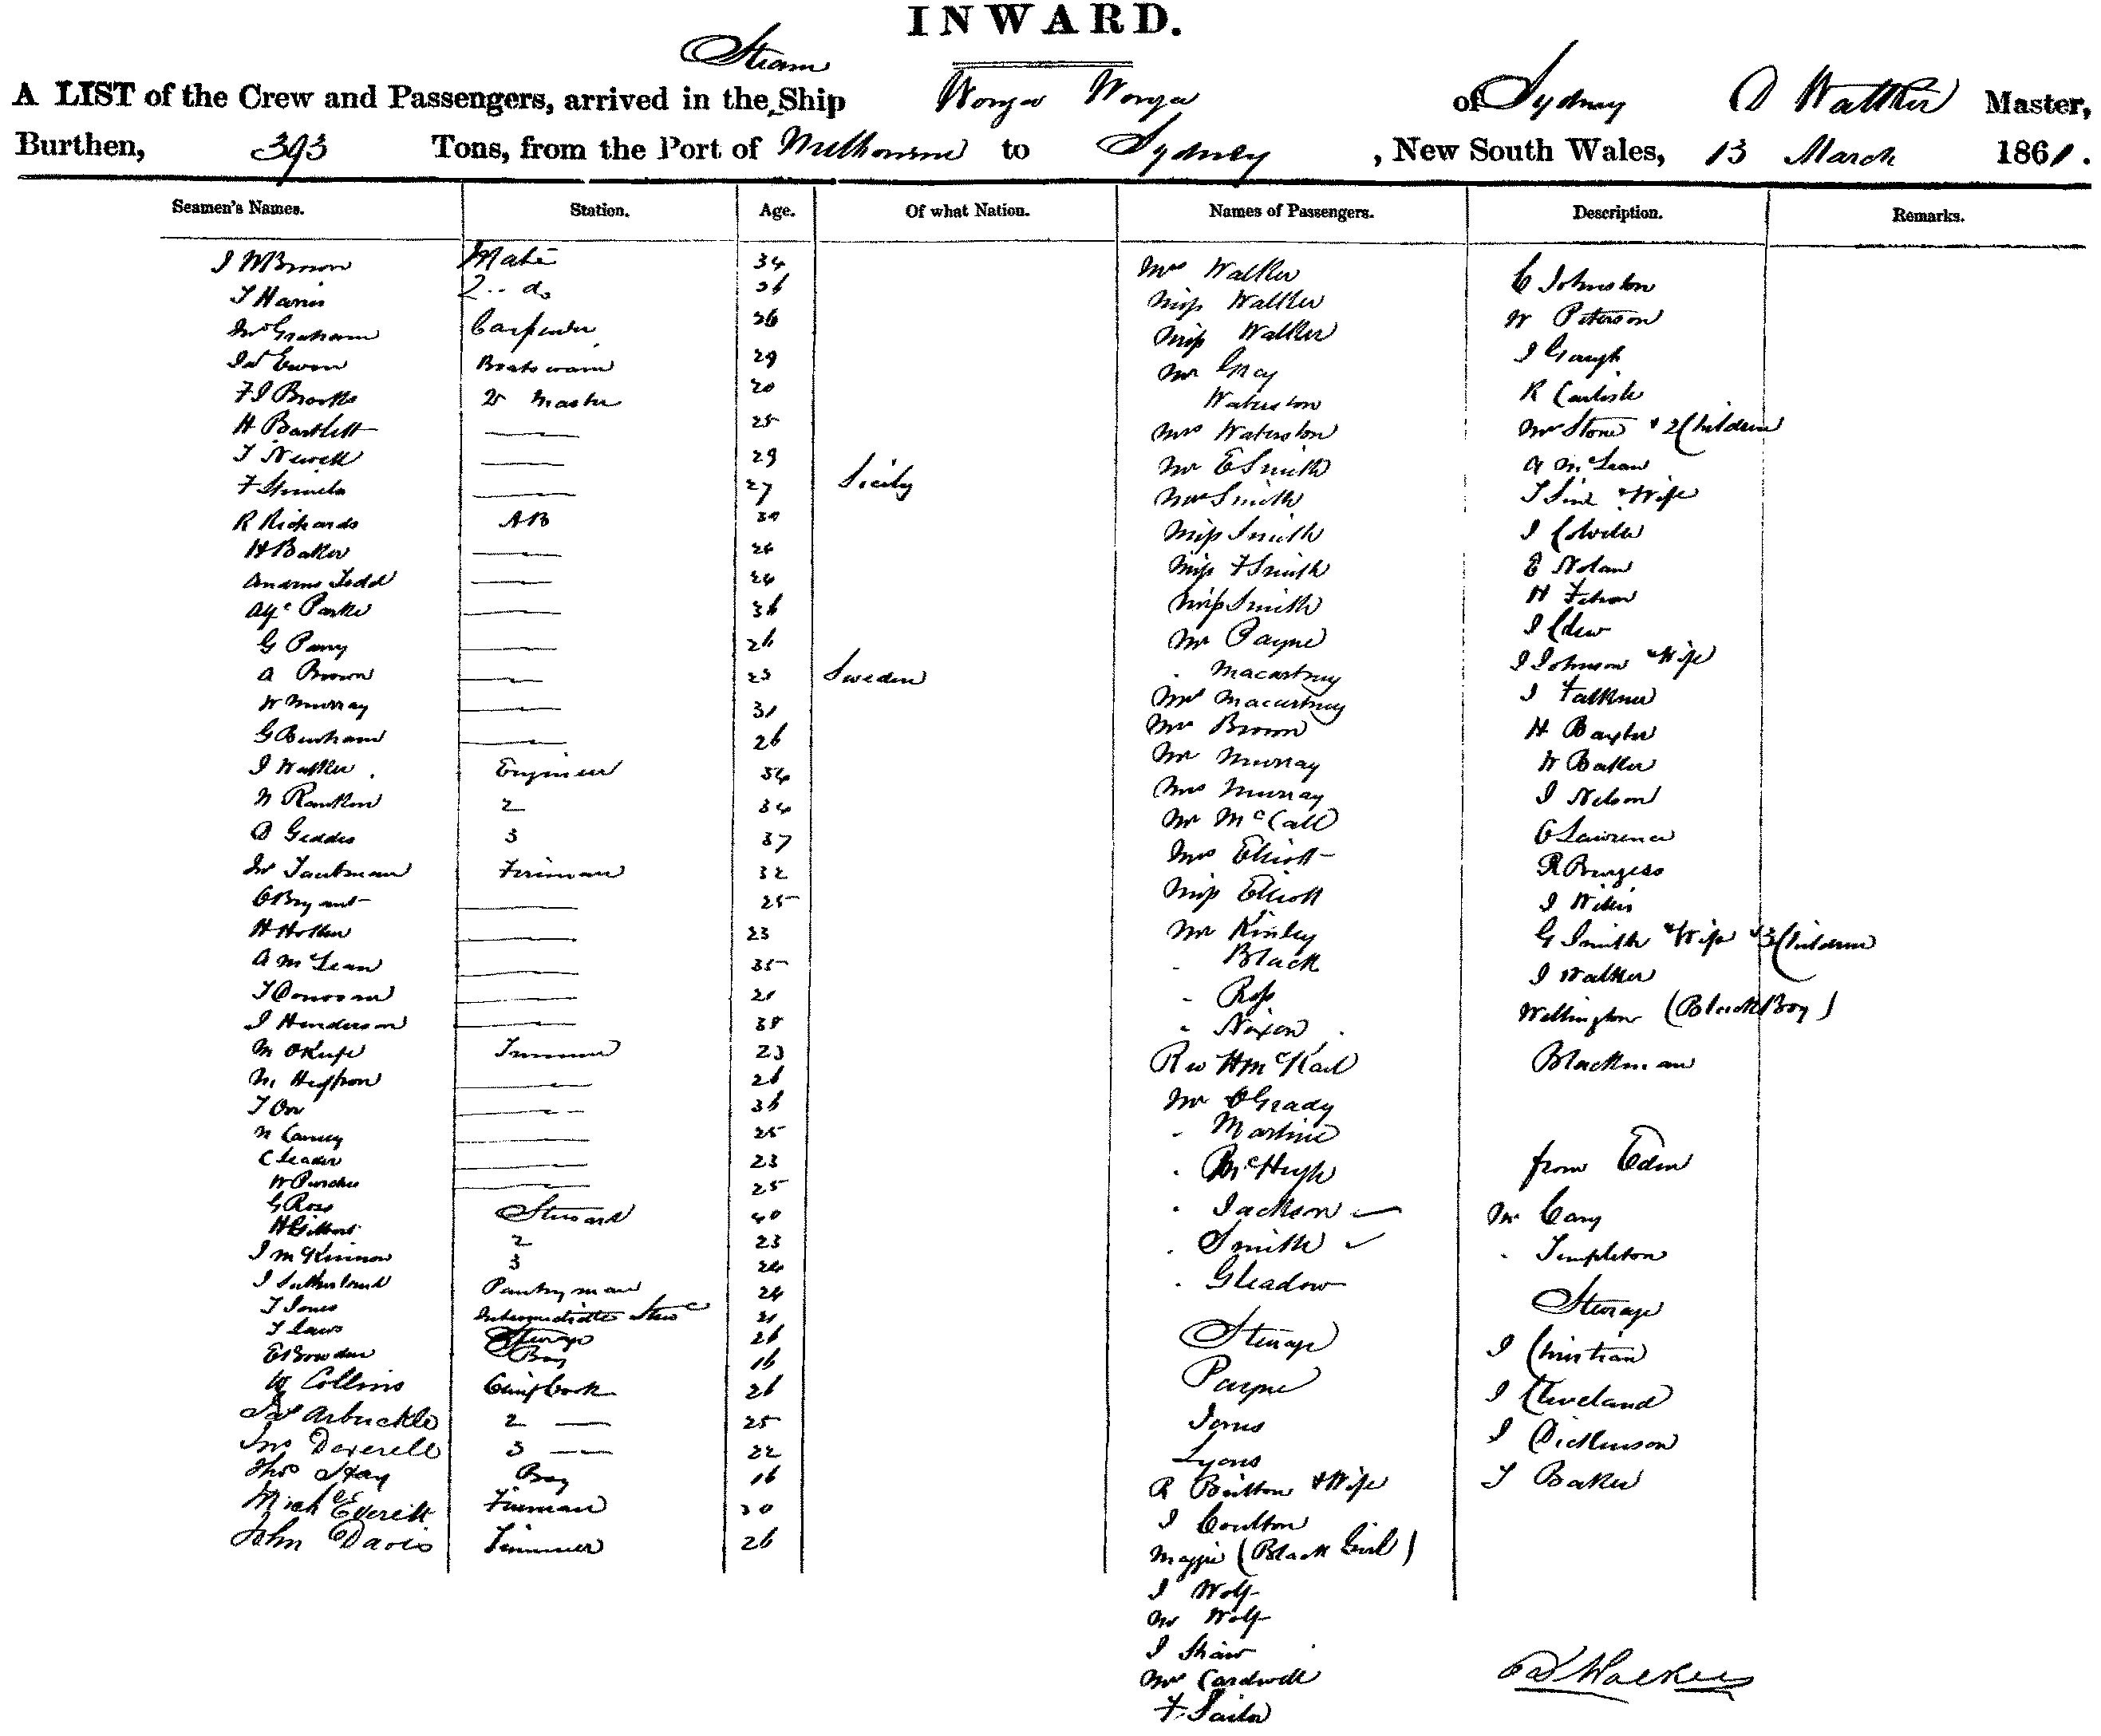 INWARD.
Steam
A LIST of the Crew and Passengers, arrived in the Ship Wonga Wonga of Sydney D Walker Master,
Burthen, 393 Tons, from the Port of Melbourne to Sydney, New South Wales, 13 March 1861.
Seamen's Names. Station. Age. Of what Nation. Names of Passengers. Description. Remarks.
J W Brown Mate 34 Mrs Walker C Johnston
T Harris 2 .. do 36 Miss Walker W Peterson
Graham Carpenter 36 Miss Walker J Gough
Jas Ewen Boatswain 29 Mr Gray R Carlisle
F J Brooks Qr Master 20 Waterston Mrs Stone & 2 Children
H Bartlett 25 Mrs Waterston A McLean
T Newell 29 Mr E Smith & Wife
F 27 Sicily Mrs Smith J
R Richards AB 30 Miss Smith E Nolan
H Baker 26 Miss F Smith H
Andrew Todd 24 Miss Smith J
Parker 36 Mr Payne J Johnson & Wife
G Parry 26 Macartney J Falkner
A Brown 23 Sweden Mrs Macartney H Baxter
W Murray 31 Mr Brown W Baker
G Benham 26 Mr Murray J Nelson
J Walker Engineer 34 Mrs Murray C Lawrence
N Rankin 2 34 Mr McCall R Burgess
D Geddes 3 37 Mrs Elliott J
Taubman Fireman 32 Miss Elliott G Smith & Wife & 3 Children
C Bryant 25 Mr Kinley J Walker
H 23 Black Wellington (Black Boy)
A McLean 35 Ross Blackman
T Donovan 21 Nixon
J Henderson 38 Rev H McKail
M O'Keefe Trimmer 23 Mr O'Grady
M Heffron 26 Martin from Eden
T Orr 36 McHugh Mr Cary
N 25 Jackson Templeton
C Leader 23 Smith Steerage
W 25 Gleadow J Christian
G Ross Steward 40 Steerage J Cleveland
H Gilbert 2 23 Payne J Dickinson
J McKinnon 3 24 Jones T Baker
J Sutherland Pantryman 24 Lyons
T Jones Intermediate Stew 21 R Britton & Wife
T Laws Steerage 26 J Coulton
E Bowden Boy 16 Maggie (Black Girl)
W Collins Chief Cook 26 J Wolf
Jas Arbuckle 2 25 Mr Wolf
Jno Deverell 3 22 J Shaw
Thos Hay Boy 16 Mrs Cardwell
Mich Everitt Fireman 30 F
John Davis Trimmer 26
D Walker